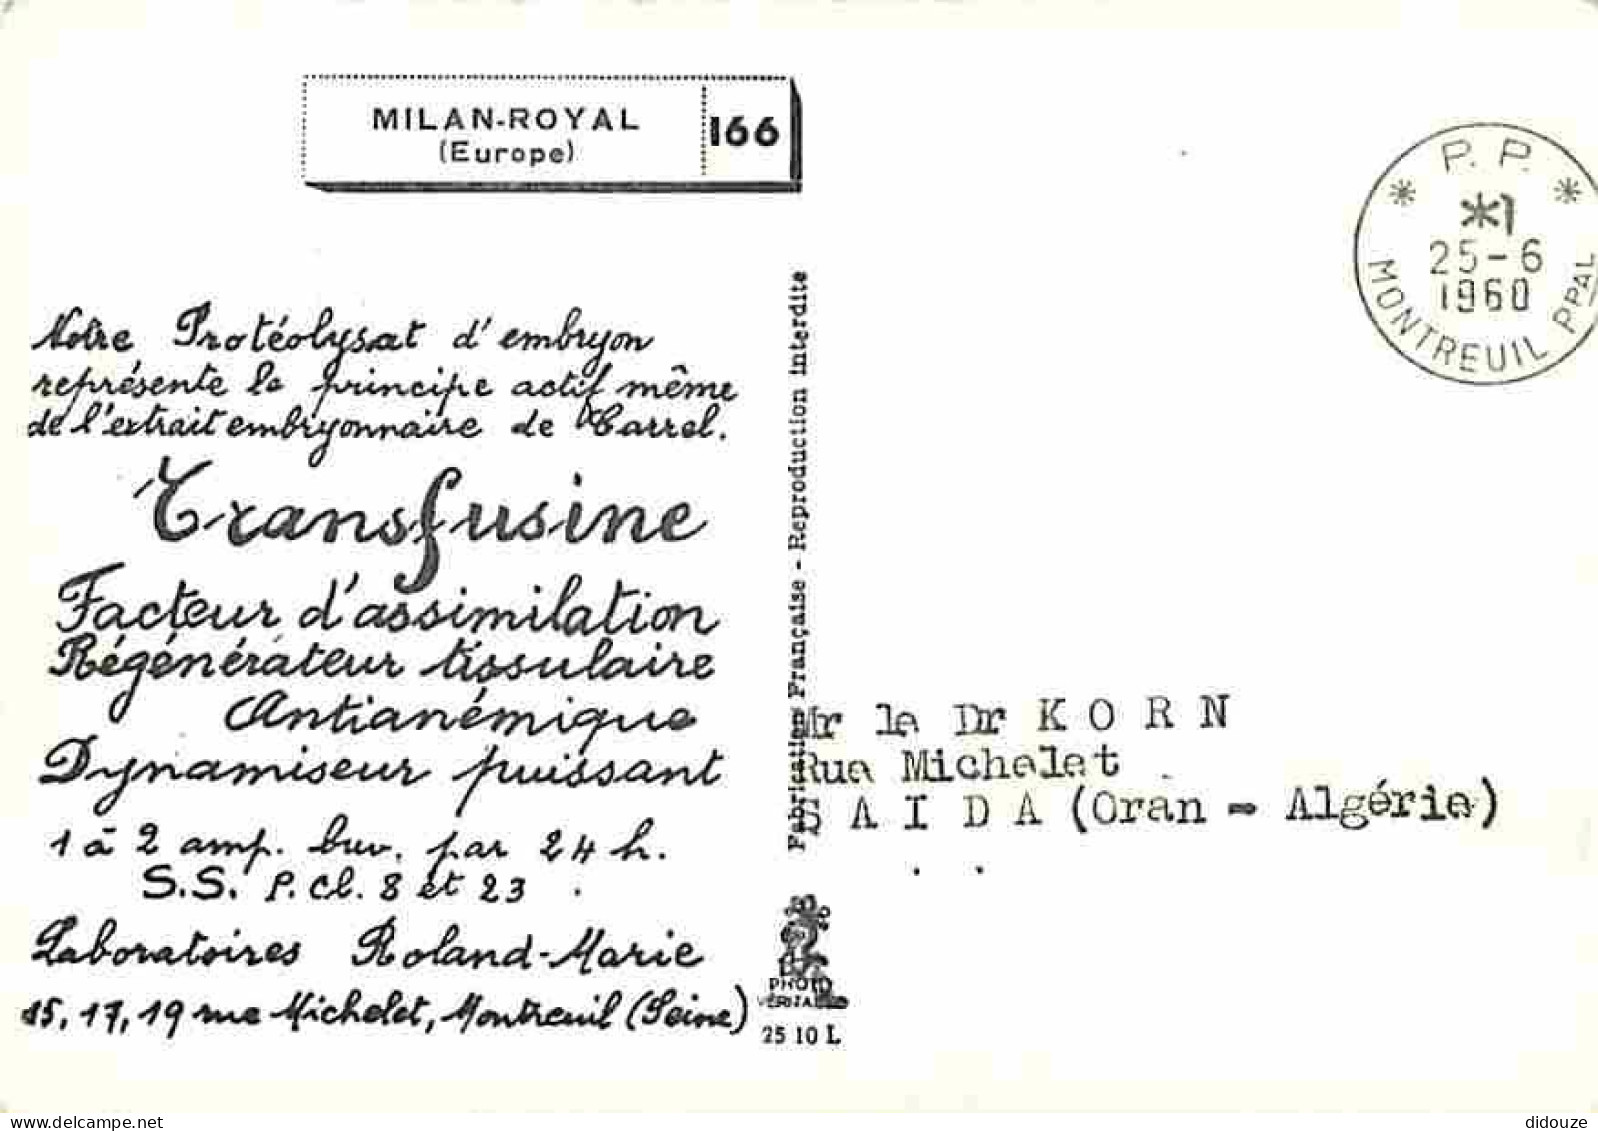 MILAN-ROYAL
(Europe)
166
P. P.
*1
25-6
1960
MONTREUIL PPAL
Notre Protéolysat d'embryon
représente le principe actif même
de l'extrait embryonnaire de Carrel.
Transfusine
Facteur d'assimilation
Régénérateur tissulaire
Antianémique
Dynamiseur puissant
1 à 2 amp. buv. par 24 h.
S.S. P. Cl. 8 et 23
Laboratoires Roland-Marie
15, 17, 19 rue Michelet, Montreuil (Seine)
Fabrication Française - Reproduction interdite
Mr le Dr K O R N
Rue Michelet
S A I D A (Oran - Algérie)
PHOTO
VÉRITABLE
25 10 L
delcampe.net
didouze